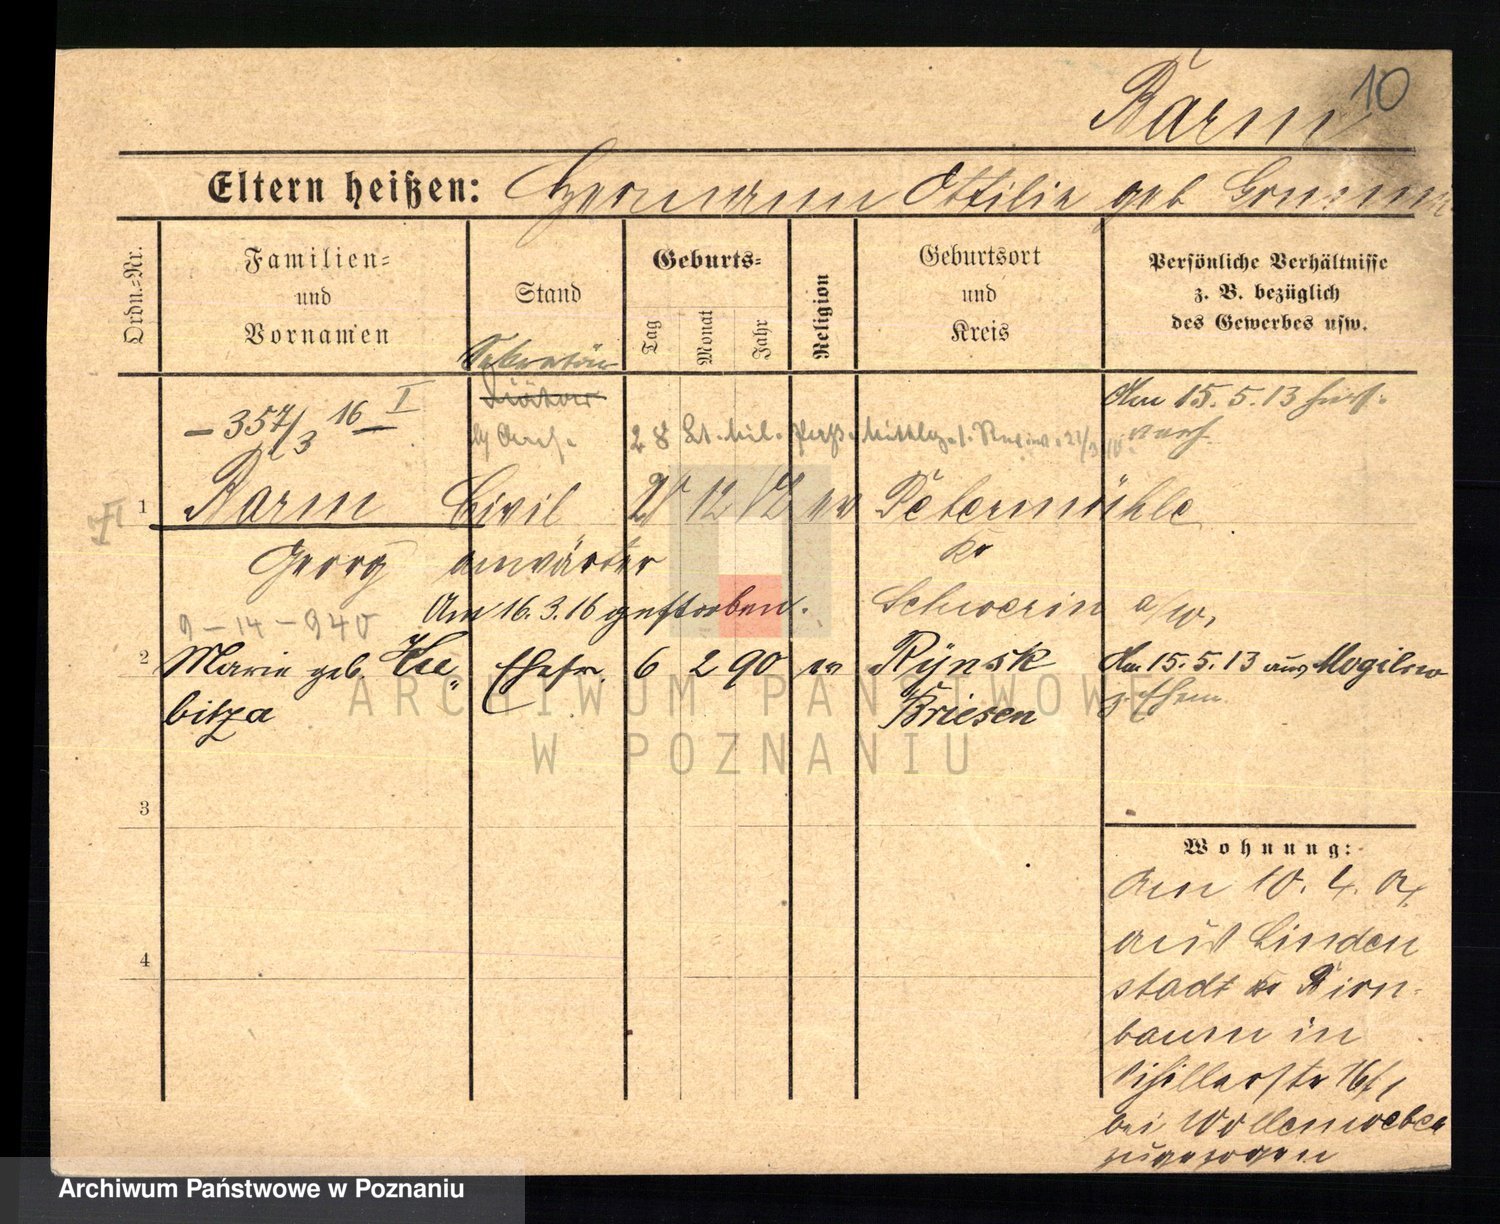 10
Bärm
Eltern heißen: Hermann Ottilie geb
Ordn.-Nr.
Familien- und Vornamen
Stand
Geburts-
Tag
Monat
Jahr
Religion
Geburtsort und Kreis
Persönliche Verhältnisse z. B. bezüglich des Gewerbes usw.
Sekretär
– 357/3 16 I
Am 15.5.13
verh.
28
1
Bärm Civil 12 ev Petermühle
Georg anwärter Kr
Am 16.3.16 gestorben. Schwerin a/W.
9-14-940
2
Marie geb. Ehefr. 6 2 90 ev Rynsk Am 15.5.13 aus Mogilno
bitza Briesen z. Ehem
3
4
Wohnung:
Am 10. 4. 04
aus Linden
stadt Kr Birn-
baum in
Schillerstr 16/1
bei Wollenweber
zugezogen
ARCHIWUM PAŃSTWOWE
W POZNANIU
Archiwum Państwowe w Poznaniu